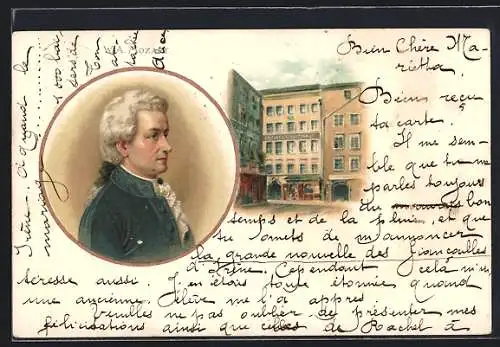 W. A. MOZART
Bien Chère Ma-
rietha.
Bien reçu
ta carte.
Il me sem-
ble que tu me
parles toujours
du bon
temps et de la pluie, et que
tu omets de m'annoncer
la grande nouvelle des fiançailles
d'Irène. Cependant cela m'in-
téresse aussi. J'en étais toute étonnée quand
une ancienne élève me l'a appris
Veuilles ne pas oublier de présenter mes
félicitations ainsi que celles de Rachel à
Irène. À quand le
mariage
1000 bai-
sers de
Ton